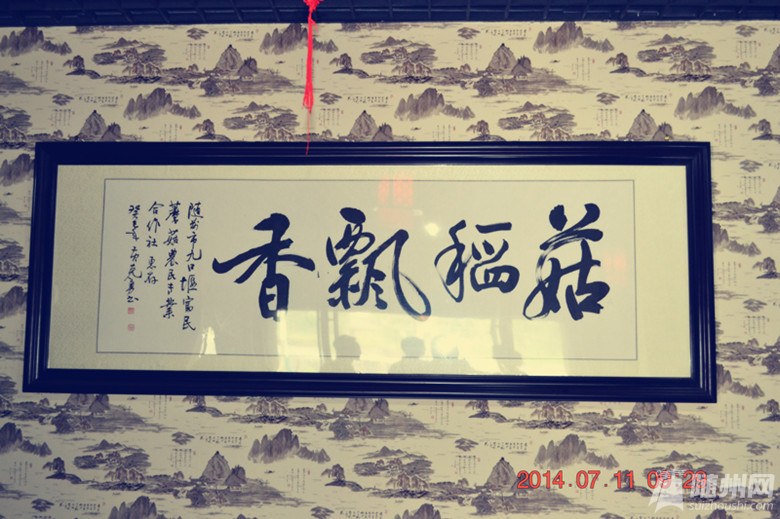 菇稻飘香
随州市九口堰富民
蘑菇农民专业
合作社惠存
癸巳年
2014.07.11
随州网
suizhoushi.com